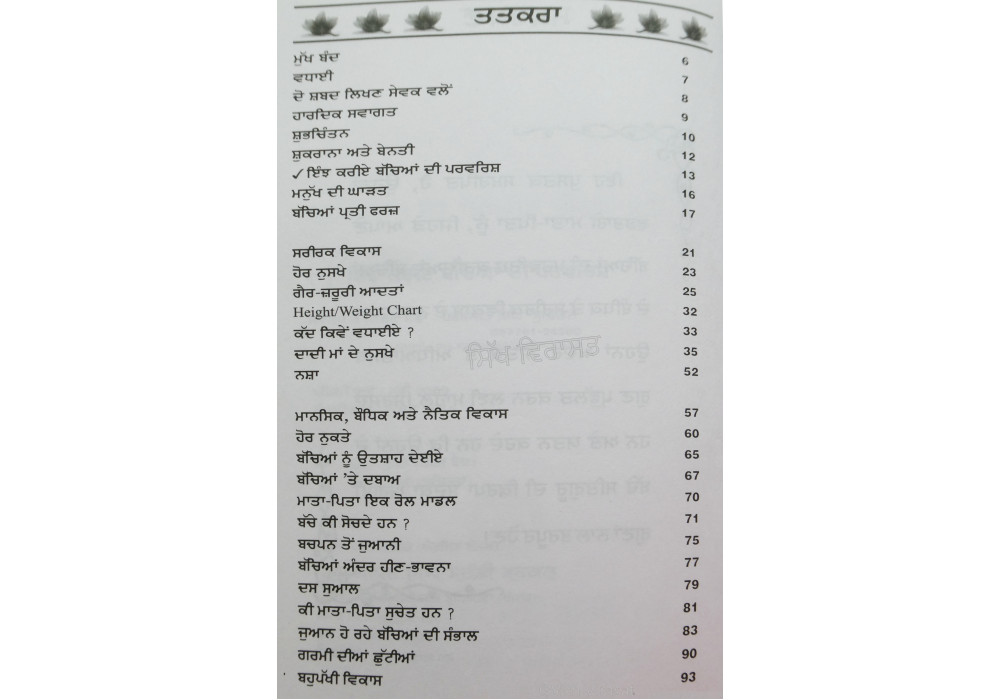 ਤਤਕਰਾ
ਮੁੱਖ ਬੰਦ 6
ਵਧਾਈ 7
ਦੋ ਸ਼ਬਦ ਲਿਖਣ ਸੇਵਕ ਵਲੋਂ 8
ਹਾਰਦਿਕ ਸਵਾਗਤ 9
ਸ਼ੁਭਚਿੰਤਨ 10
ਸ਼ੁਕਰਾਨਾ ਅਤੇ ਬੇਨਤੀ 12
✓ ਇੰਝ ਕਰੀਏ ਬੱਚਿਆਂ ਦੀ ਪਰਵਰਿਸ਼ 13
ਮਨੁੱਖ ਦੀ ਘਾੜਤ 16
ਬੱਚਿਆਂ ਪ੍ਰਤੀ ਫਰਜ਼ 17
ਸਰੀਰਕ ਵਿਕਾਸ 21
ਹੋਰ ਨੁਸਖੇ 23
ਗੈਰ-ਜ਼ਰੂਰੀ ਆਦਤਾਂ 25
Height/Weight Chart 32
ਕੱਦ ਕਿਵੇਂ ਵਧਾਈਏ ? 33
ਦਾਦੀ ਮਾਂ ਦੇ ਨੁਸਖੇ 35
ਸਿੱਖ ਵਿਰਾਸਤ
ਨਸ਼ਾ 52
ਮਾਨਸਿਕ, ਬੌਧਿਕ ਅਤੇ ਨੈਤਿਕ ਵਿਕਾਸ 57
ਹੋਰ ਨੁਕਤੇ 60
ਬੱਚਿਆਂ ਨੂੰ ਉਤਸ਼ਾਹ ਦੇਈਏ 65
ਬੱਚਿਆਂ 'ਤੇ ਦਬਾਅ 67
ਮਾਤਾ-ਪਿਤਾ ਇਕ ਰੋਲ ਮਾਡਲ 70
ਬੱਚੇ ਕੀ ਸੋਚਦੇ ਹਨ ? 71
ਬਚਪਨ ਤੋਂ ਜੁਆਨੀ 75
ਬੱਚਿਆਂ ਅੰਦਰ ਹੀਣ-ਭਾਵਨਾ 77
ਦਸ ਸੁਆਲ 79
ਕੀ ਮਾਤਾ-ਪਿਤਾ ਸੁਚੇਤ ਹਨ ? 81
ਜੁਆਨ ਹੋ ਰਹੇ ਬੱਚਿਆਂ ਦੀ ਸੰਭਾਲ 83
ਗਰਮੀ ਦੀਆਂ ਛੁੱਟੀਆਂ 90
ਬਹੁਪੱਖੀ ਵਿਕਾਸ 93